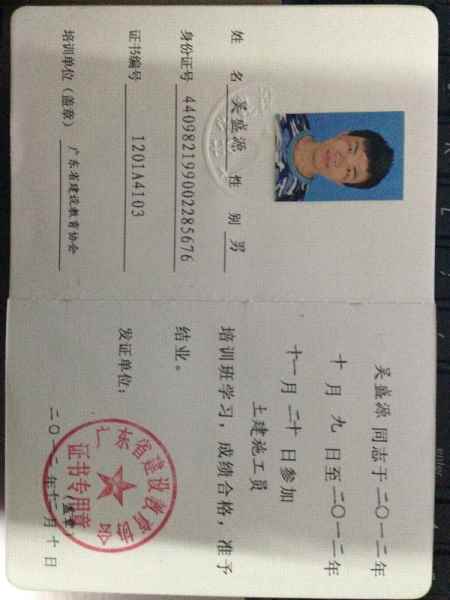 姓 名 吴盛源 性 别 男
身份证号 440982199002285676
证书编号 1201A4103
培训单位（盖章） 广东省建设教育协会
吴盛源 同志于二〇一二年
十 月 九 日至二〇一二年
十一 月 二十 日参加
土建施工员
培训班学习，成绩合格，准予
结业。
发证单位：
广东省建设教育协会
证书专用章
（盖章）
二〇一二年十二月十日
enter